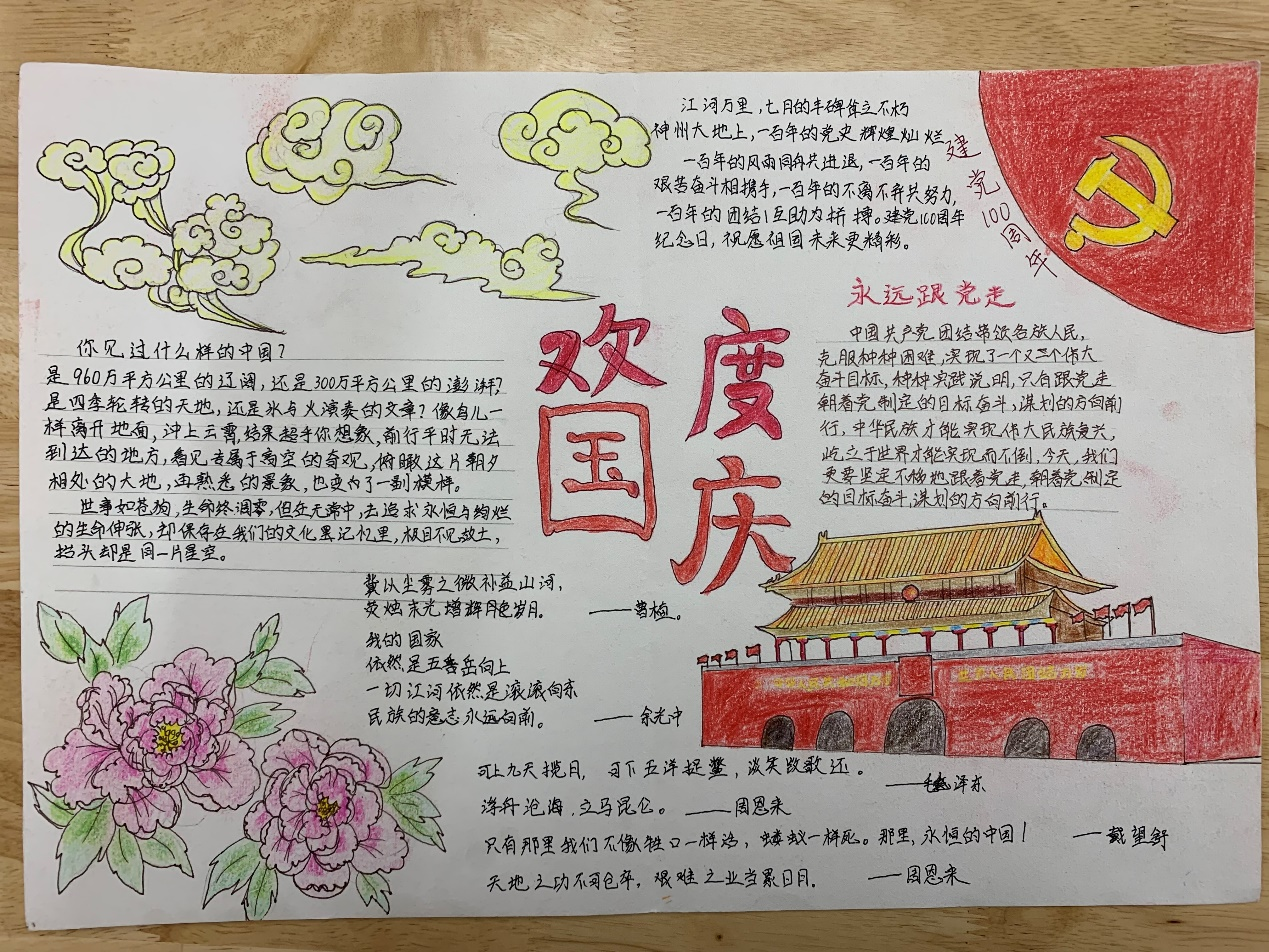 江河万里，七月的丰碑耸立不朽
神州大地上，一百年的党史辉煌灿烂
一百年的风雨同舟共进退，一百年的
艰苦奋斗相携手，一百年的不离不弃共努力，
一百年的团结互助为拼搏。建党100周年
纪念日，祝愿祖国未来更精彩。
建党100周年
永远跟党走
中国共产党团结带领各族人民，
克服种种困难，实现了一个又一个伟大
奋斗目标，种种实践说明，只有跟党走
朝着党制定的目标奋斗，谋划的方向前
行，中华民族才能实现伟大民族复兴，
屹立于世界才能实现而不倒，今天，我们
更要坚定不移地跟着党走，朝着党制定
的目标奋斗，谋划的方向前行。
欢度
国庆
你见过什么样的中国？
是960万平方公里的辽阔，还是300万平方公里的澎湃？
是四季轮转的天地，还是冰与火演奏的文章？像鸟儿一
样离开地面，冲上云霄，结果超乎你想象，前行平时无法
到达的地方，看见专属于高空的奇观，俯瞰这片朝夕
相处的大地，再熟悉的景象，也变为了一副模样。
世事如苍狗，生命终凋零，但在无常中，去追求永恒与绚烂
的生命伸张，却保存在我们的文化里记忆里，极目不见故土，
抬头却是同一片星空。
冀以尘雾之微补益山河，
荧烛末光增辉月岁月。 ——曹植。
我的国家
依然是五岳向上
一切江河依然是滚滚向东
民族的意志永远向前。 ——余光中
可上九天揽月，可下五洋捉鳖，谈笑凯歌还。
——毛泽东
浮舟沧海，立马昆仑。——周恩来
只有那里我们不像牲口一样活，蝼蚁一样死。那里，永恒的中国！ ——戴望舒
天地之功不可仓卒，艰难之业当累日月。 ——周恩来